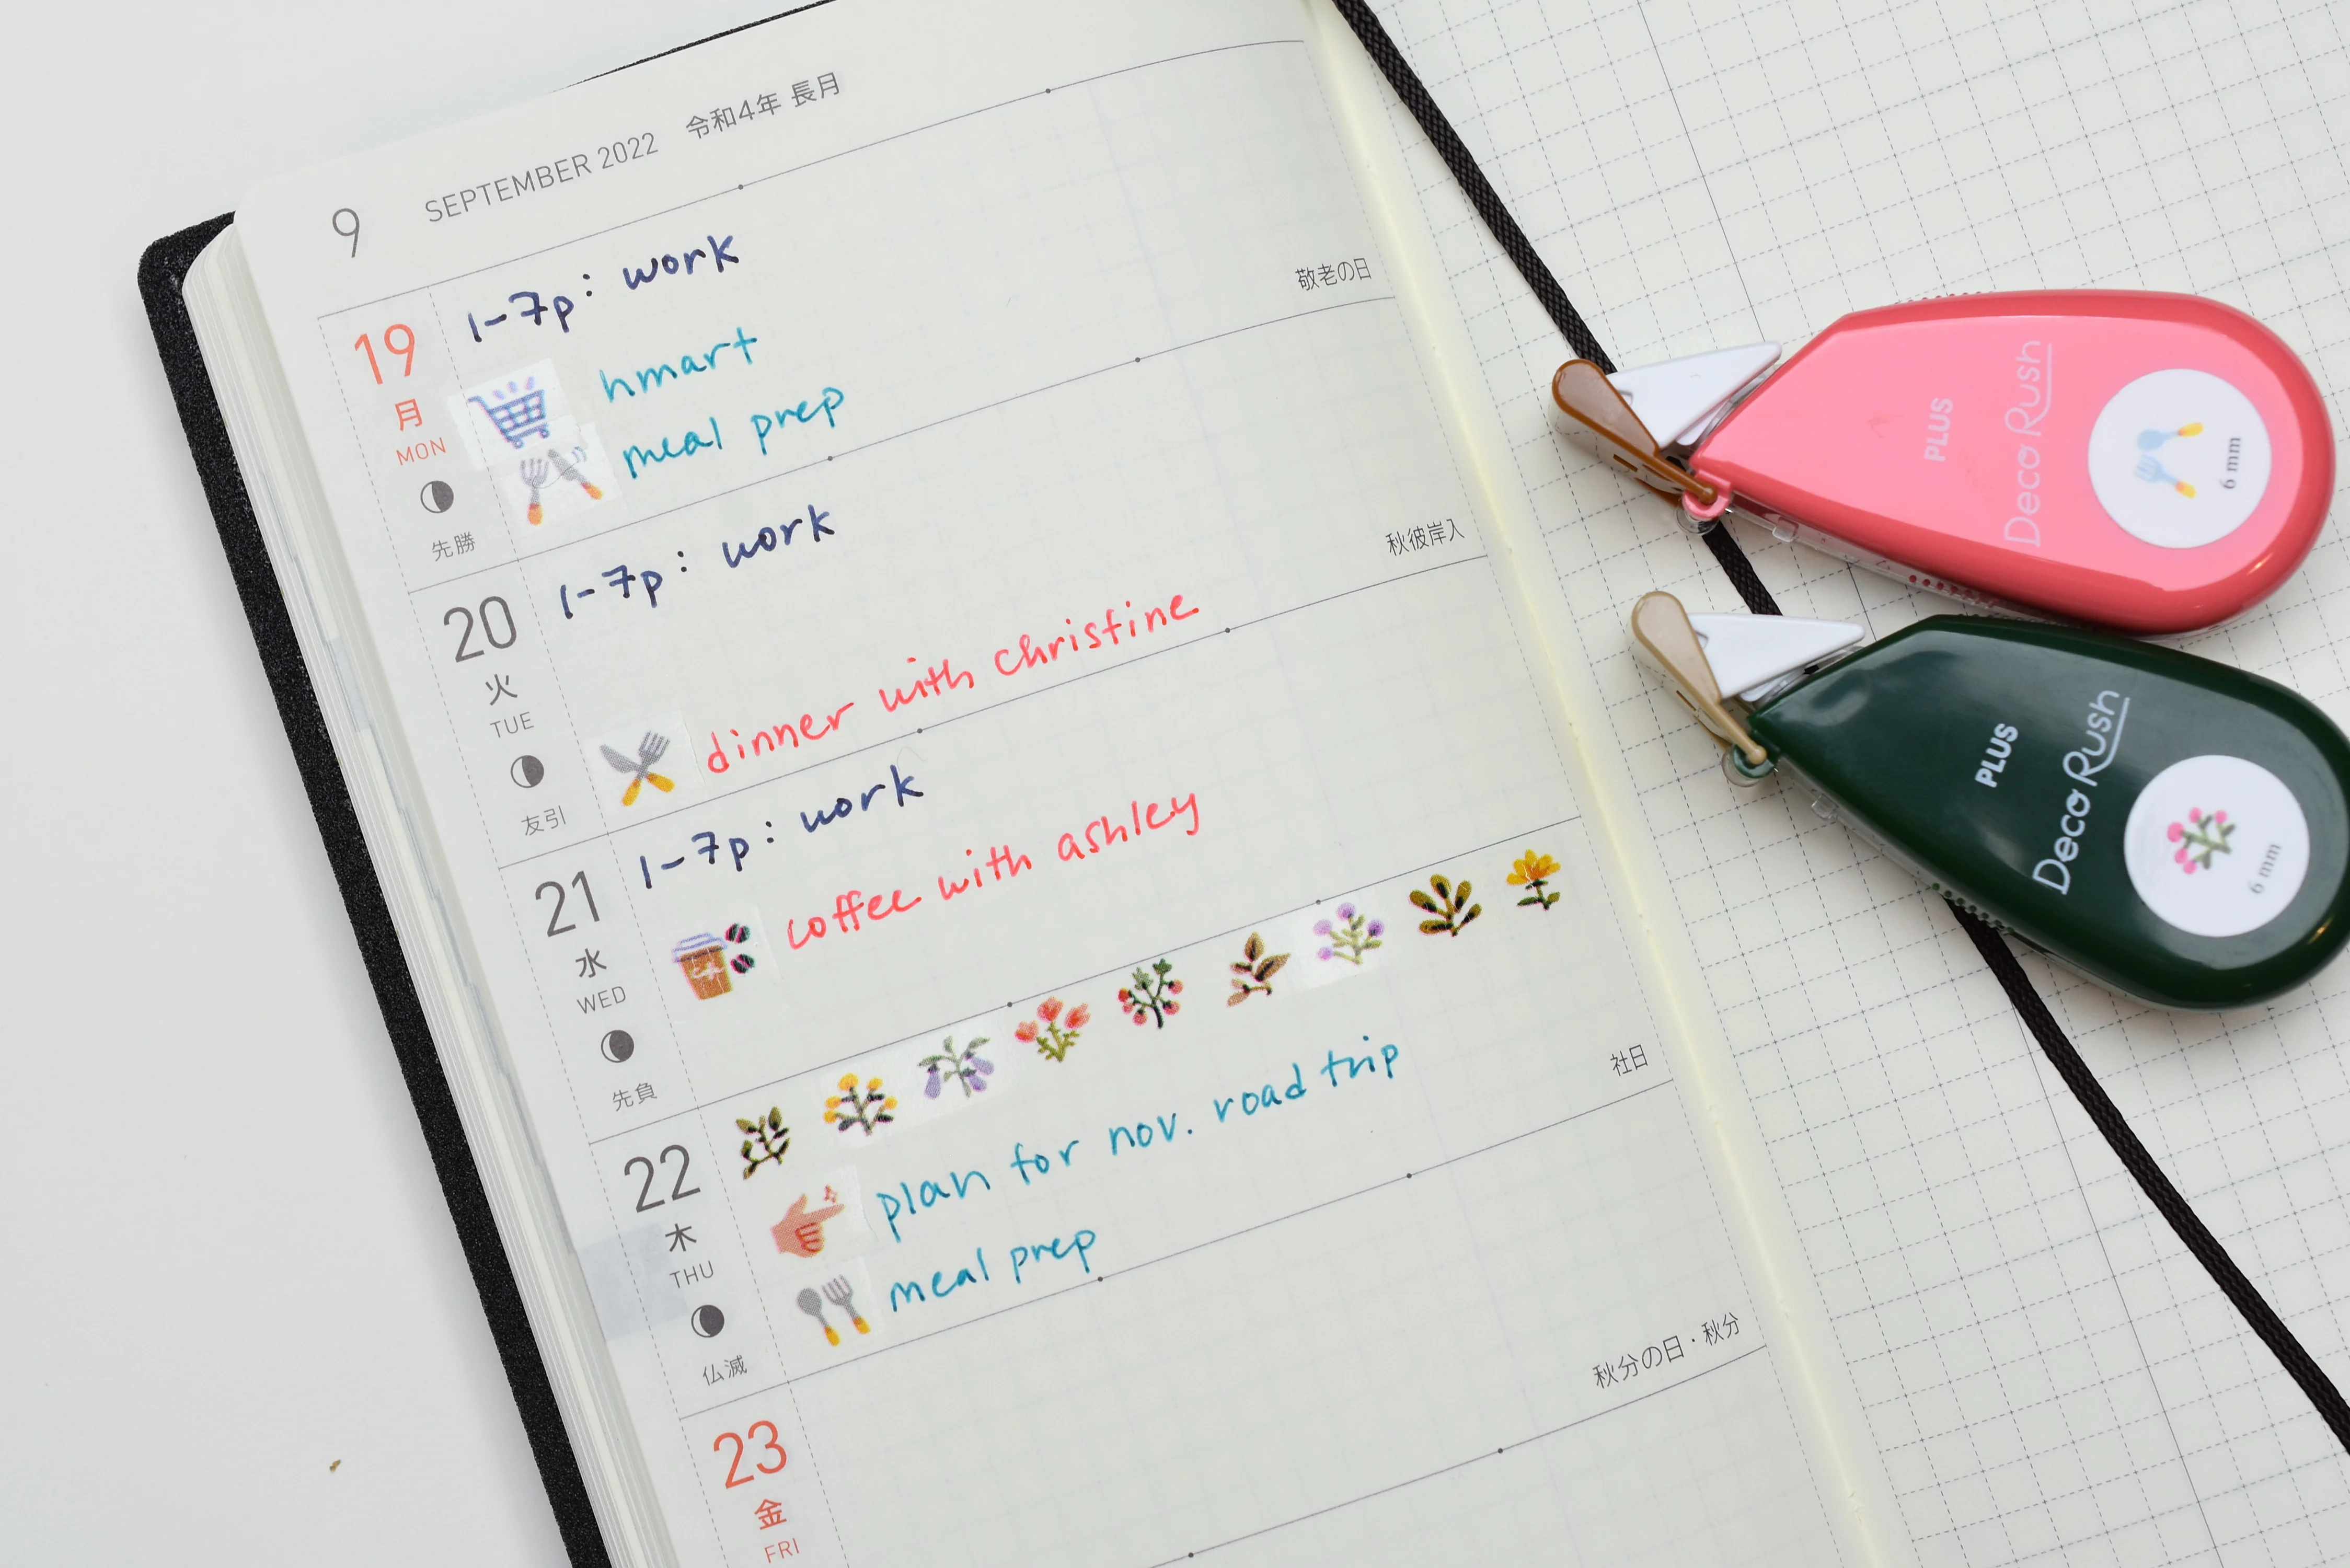 9 SEPTEMBER 2022 令和4年 長月
19
月
MON
先勝
1-7p: work
hmart
meal prep
敬老の日
20
火
TUE
友引
1-7p: work
dinner with christine
秋彼岸入
21
水
WED
先負
1-7p: work
coffee with ashley
22
木
THU
仏滅
plan for nov. road trip
meal prep
社日
23
金
FRI
秋分の日・秋分
PLUS
Deco Rush
6 mm
PLUS
Deco Rush
6 mm